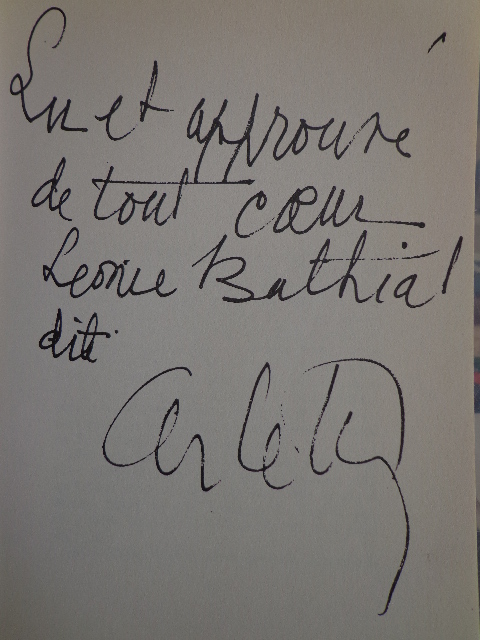 Lu et approuvé
de tout cœur
Leonie Bathiat
dite
Arletty